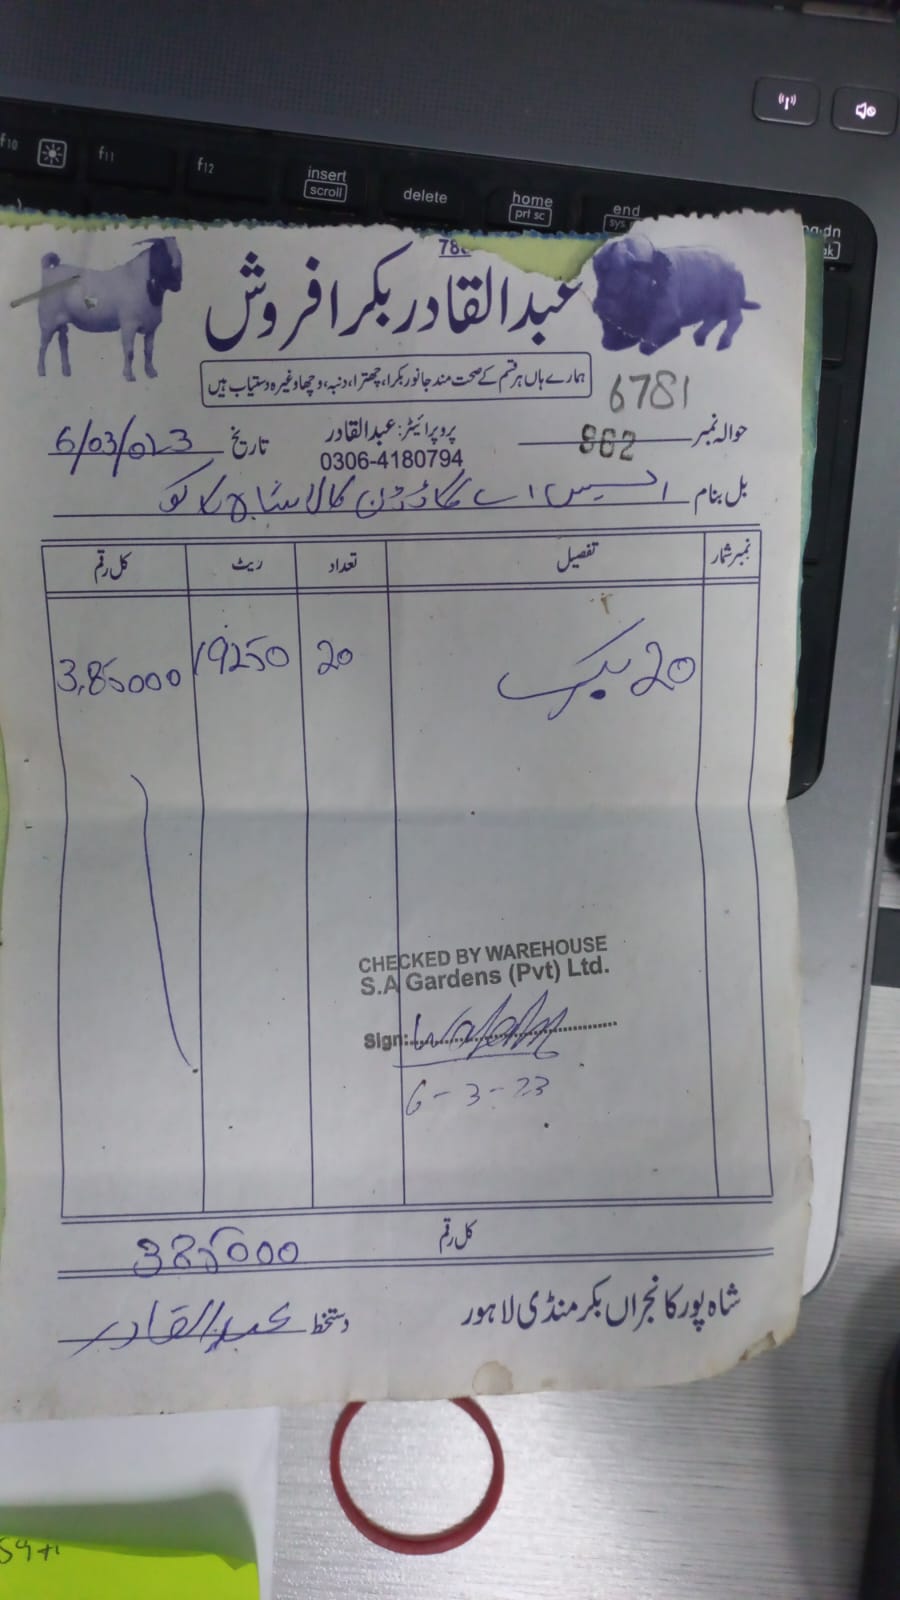 f10 f11 f12 insert scroll delete home prt sc end
عبدالقادر بکرا فروش
ہمارے ہاں ہر قسم کے صحت مند جانور بکرا، چھترا، دنبہ، وچھا وغیرہ دستیاب ہیں
6781
حوالہ نمبر 862 پروپرائیٹر: عبدالقادر تاریخ 6/03/023
0306-4180794
بل بنام ایس اے گارڈن کالا شاہ کاکو
نمبر شمار تفصیل تعداد ریٹ کل رقم
20 بکرے 20 19250 3,85000
CHECKED BY WAREHOUSE
S.A Gardens (Pvt) Ltd.
Sign:
6-3-23
کل رقم 385000
شاہ پور کانجراں بکر منڈی لاہور دستخط عبدالقادر